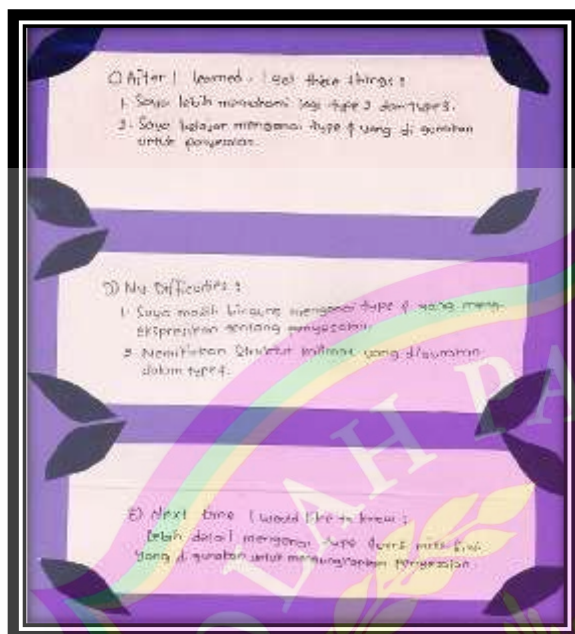 C) After I learned, I get these things :
1. Saya lebih memahami lagi type 2 dan type 3.
2. Saya belajar mengenai type 4 yang di gunakan
untuk penyesalan.
D) My Difficulties :
1. Saya masih bingung mengenai type 4 yang meng-
ekspresikan tentang penyesalan.
2. Memikirkan Struktur kalimat yang digunakan
dalam type 4.
E) Next time I would like to know :
Lebih detail mengenai type
yang di gunakan untuk mengungkapkan penyesalan.
OLAH PA